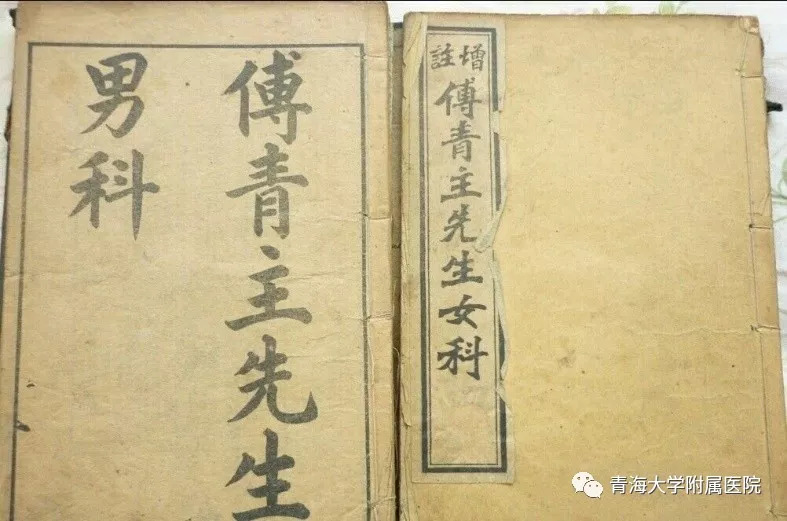 傅青主先生
男科
增註
傅青主先生女科
青海大学附属医院